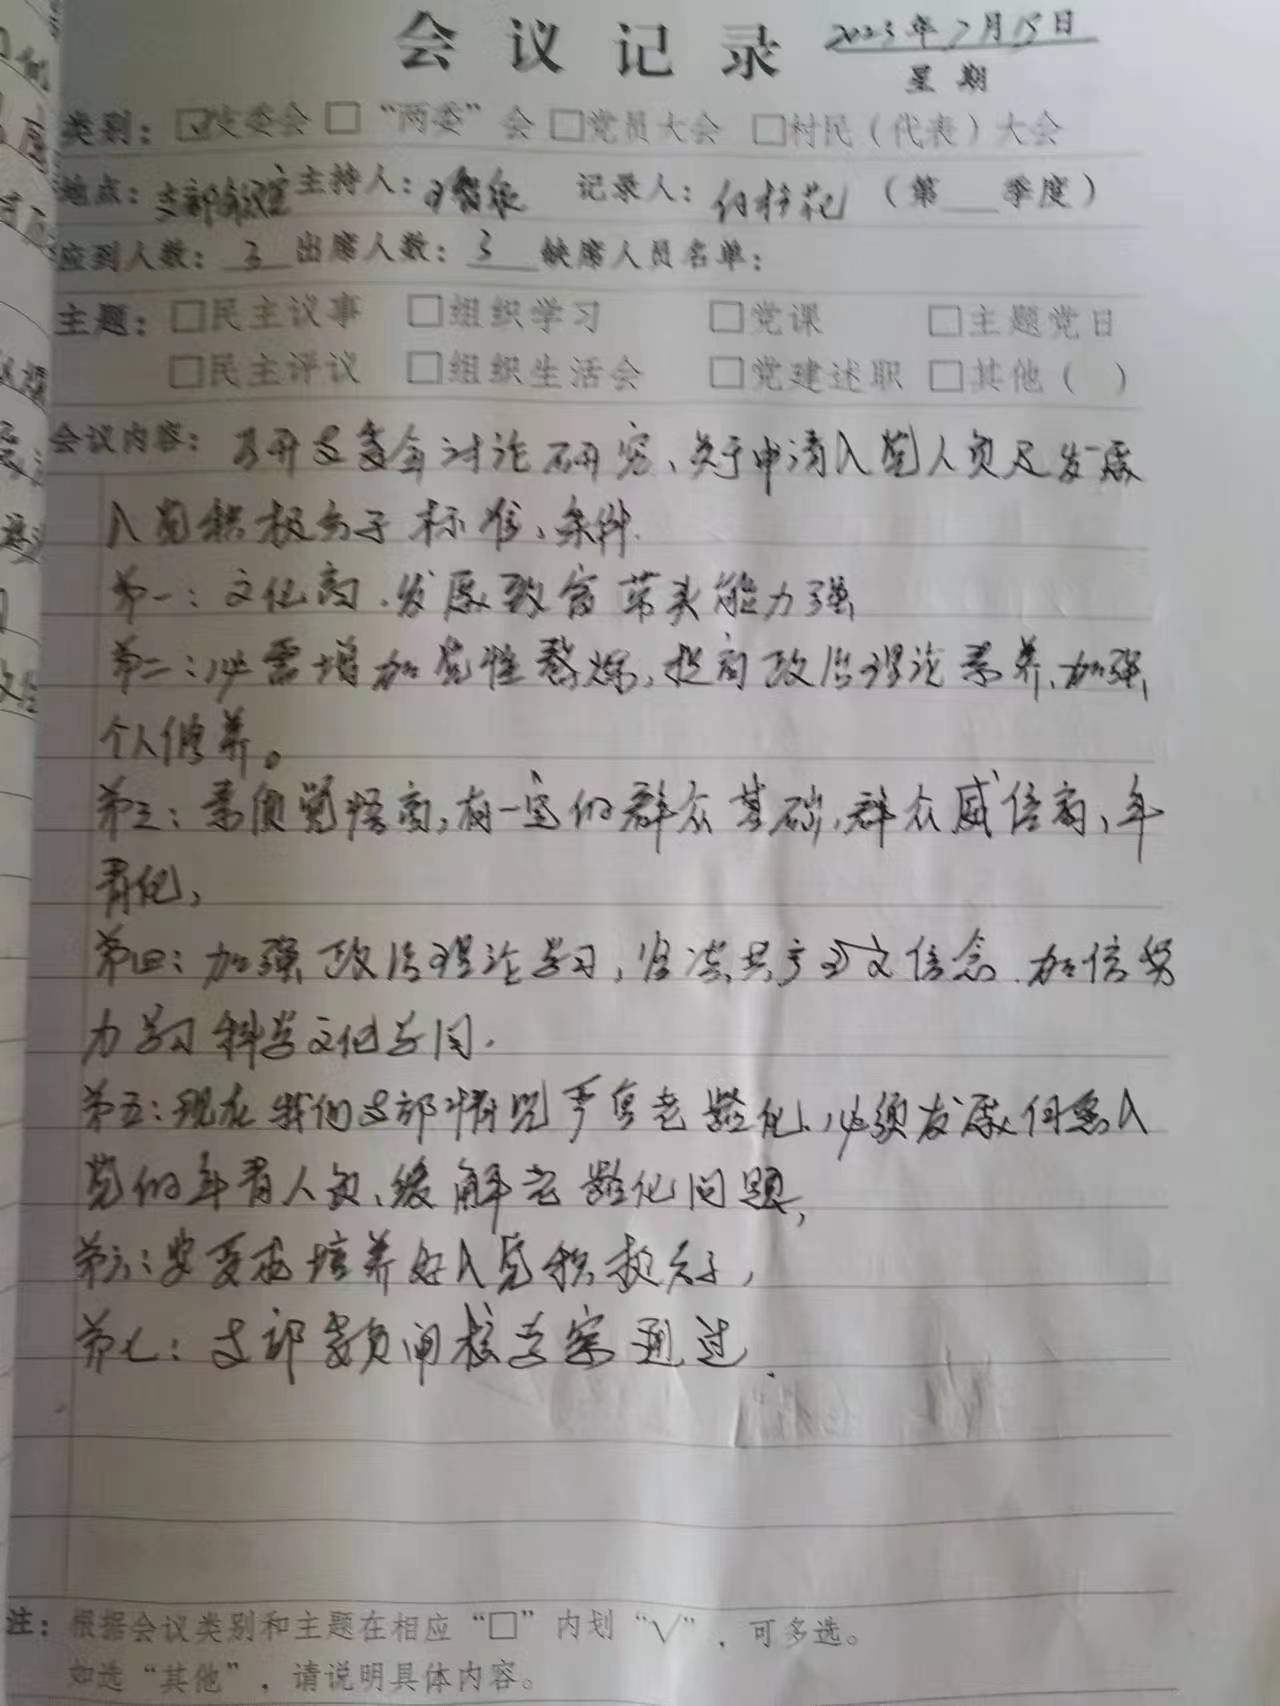 会议记录 2023年7月15日
星期
类别：☑支委会 □“两委”会 □党员大会 □村民（代表）大会
地点：支部会议室 主持人： 记录人：何桂花 （第___季度）
应到人数：3 出席人数：3 缺席人员名单：
主题：□民主议事 □组织学习 □党课 □主题党日
□民主评议 □组织生活会 □党建述职 □其他（ ）
会议内容：召开支委会讨论研究、关于申请入党人员及发展
入党积极分子标准、条件.
第一：文化高.发展致富带头能力强
第二：必需增加党性锻炼,提高政治理论素养.加强
个人修养。
第三：素质觉悟高,有一定的群众基础,群众威信高,年
青化,
第四：加强政治理论学习,坚决共产主义信念.加倍努
力学习科学文化
第五：现在我们支部情况严重老龄化.必须发展何惠入
党的年青人员,缓解老龄化问题,
第六：要培养好入党积极分子,
第七：支部通过.
注：根据会议类别和主题在相应“□”内划“√”，可多选。
如选“其他”，请说明具体内容。